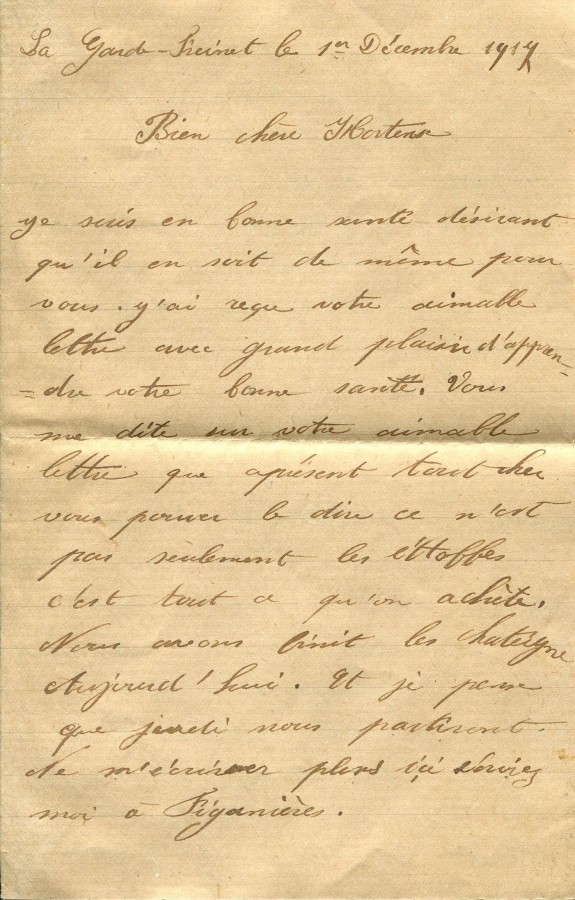 La Garde-Freinet le 1er Décembre 1917
Bien chère Hortense
ye suis en bonne santé désirant
qu'il en soit de même pour
vous. y'ai reçue votre aimable
lettre avec grand plaisir d'appren-
=dre votre bonne santé. Vous
me dite sur votre aimable
lettre que aprésent tout cher
vous pouver le dire ce n'est
pas seulement les éttoffes
c'est tout ce qu'on achète.
Nous avons finit les chateigne
Aujourd'hui. Et je pense
que jeudi nous partiront.
Ne m'écriver plus ici écrivez
moi à Figanières.